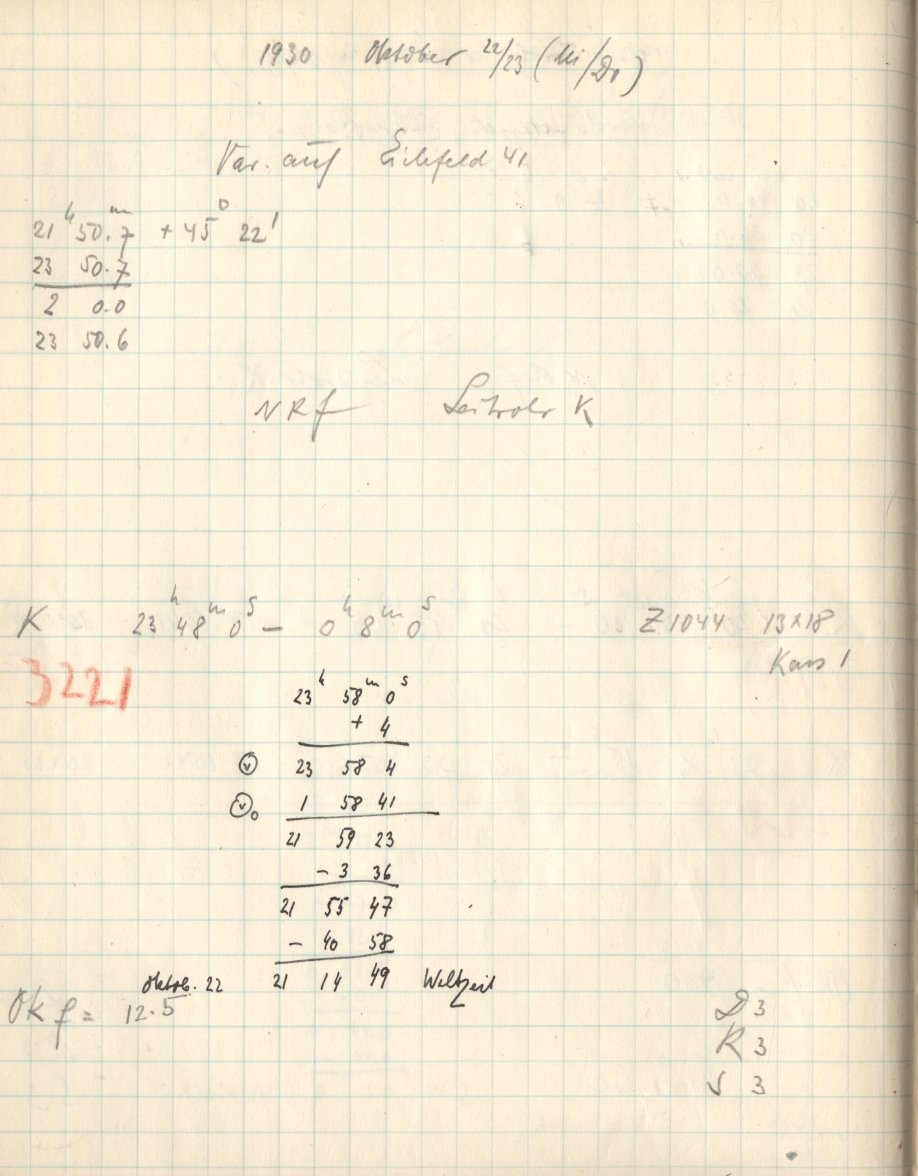 1930 Oktober 22/23 (Mi/Do)
Var. auf Eichfeld 41
21h 50.m7 +45° 22'
23 50.7
2 0.0
23 50.6
NRf Leitrohr K
K 23h 48m 0s — 0h 8m 0s Z 1044 13x18
Kass 1
3221
23h 58m 0s
+ 4
23 58 4
1 58 41
21 59 23
- 3 36
21 55 47
- 40 58
Oktob. 22 21 14 49 Weltzeit
Ok f = 12.5
D 3
R 3
S 3